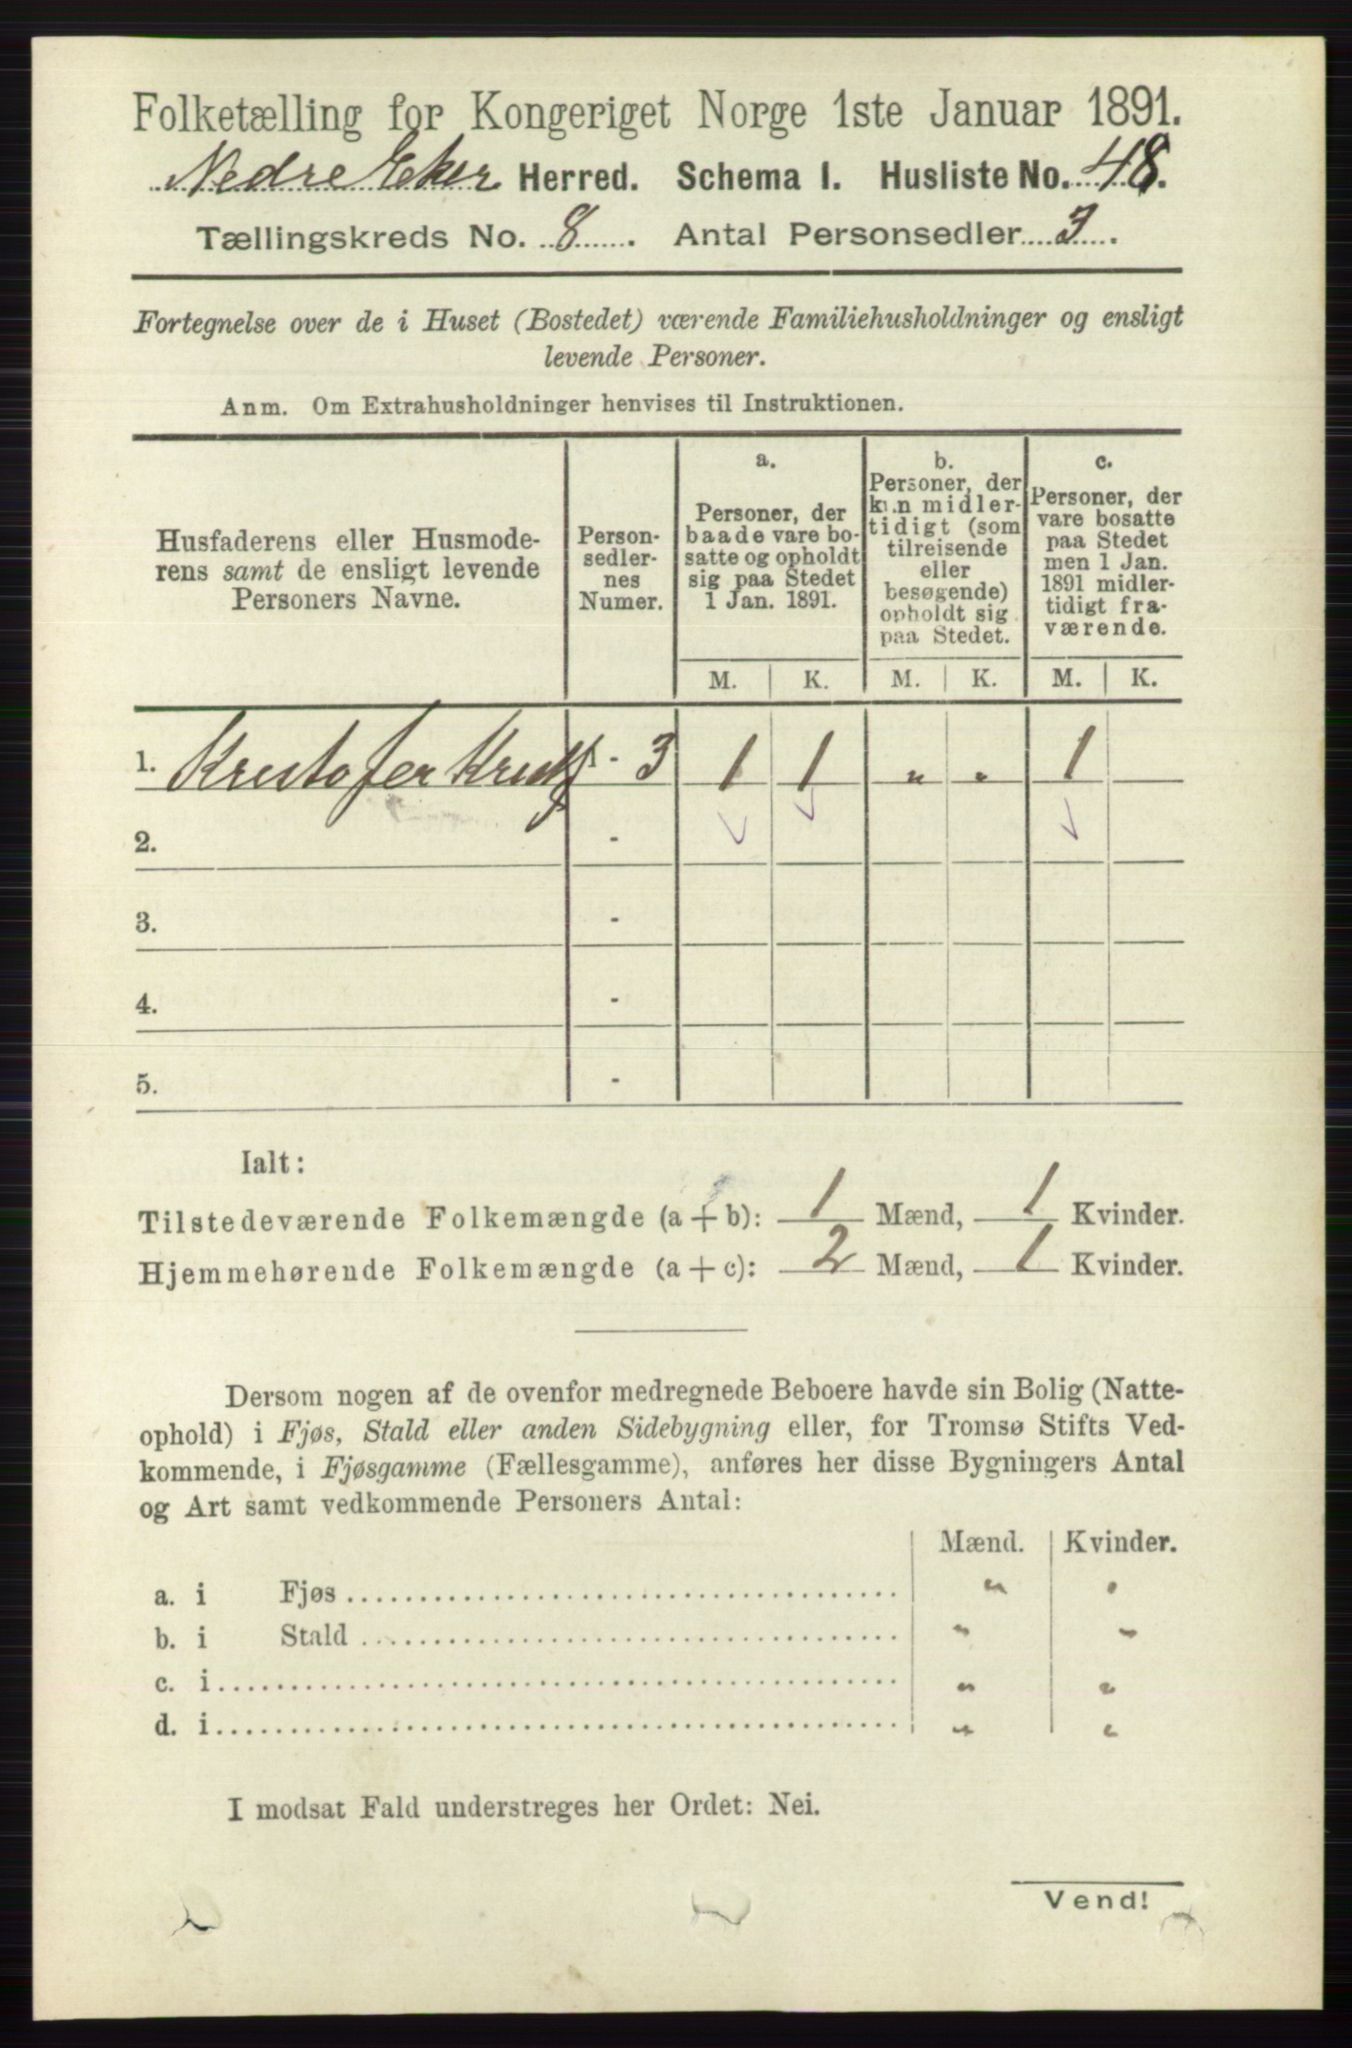 Folketælling for Kongeriget Norge 1ste Januar 1891.
Nedre Eker Herred. Schema I. Husliste No. 48.
Tællingskreds No. 8. Antal Personsedler 3.
Fortegnelse over de i Huset (Bostedet) værende Familiehusholdninger og ensligt
levende Personer.
Anm. Om Extrahusholdninger henvises til Instruktionen.
Husfaderens eller Husmode-
rens samt de ensligt levende
Personers Navne.
Person-
sedler-
nes
Numer.
a.
Personer, der
baade vare bo-
satte og opholdt
sig paa Stedet
1 Jan. 1891.
b.
Personer, der
kun midler-
tidigt (som
tilreisende
eller
besøgende)
opholdt sig
paa Stedet.
c.
Personer, der
vare bosatte
paa Stedet
men 1 Jan.
1891 midler-
tidigt fra-
værende.
M. K. M. K. M. K.
1. Kristofer 1 - 3 1 1 „ „ 1
2. -
3. -
4. -
5. -
Ialt:
Tilstedeværende Folkemængde (a + b): 1 Mænd, 1 Kvinder.
Hjemmehørende Folkemængde (a + c): 2 Mænd, 1 Kvinder.
Dersom nogen af de ovenfor medregnede Beboere havde sin Bolig (Natte-
ophold) i Fjøs, Stald eller anden Sidebygning eller, for Tromsø Stifts Ved-
kommende, i Fjøsgamme (Fællesgamme), anføres her disse Bygningers Antal
og Art samt vedkommende Personers Antal:
Mænd. Kvinder.
a. i Fjøs „ „
b. i Stald „ „
c. i „ „
d. i „ „
I modsat Fald understreges her Ordet: Nei.
Vend!